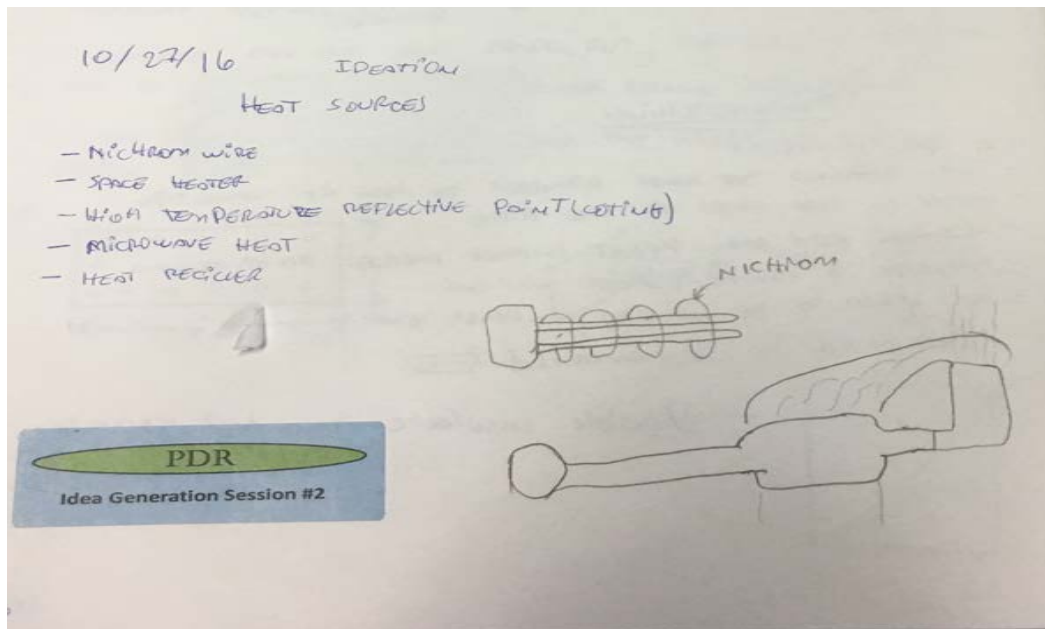 10/27/16 IDEATION
HEAT SOURCES
- NICHROM WIRE
- SPACE HEATER
- HIGH TEMPERATURE REFLECTIVE PAINT (COTING)
- MICROWAVE HEAT
- HEAT RECICLER
NICHROM
PDR
Idea Generation Session #2